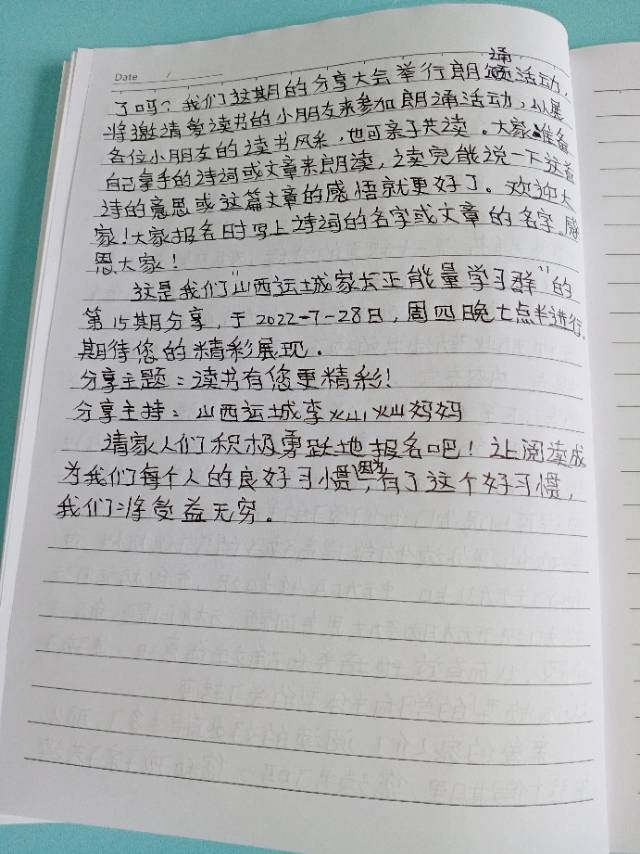 Date
诵
了吗？我们这期的分享大会举行朗颂活动，
将邀请爱读书的小朋友来参加朗诵活动，以展
各位小朋友的读书风采，也可亲子共读。大家准备
自己拿手的诗词或文章来朗读，读完能说一下这首
诗的意思或这篇文章的感悟就更好了。欢迎大
家！大家报名时写上诗词的名字或文章的名字。感
恩大家！
这是我们“山西运城家长正能量学习群”的
第15期分享，于2022-7-28日，周四晚七点半进行，
期待您的精彩展现。
分享主题：读书有您更精彩！
分享主持：山西运城李灿灿妈妈
请家人们积极勇跃地报名吧！让阅读成
为我们每个人的良好习惯，因为有了这个好习惯，
我们将受益无穷。